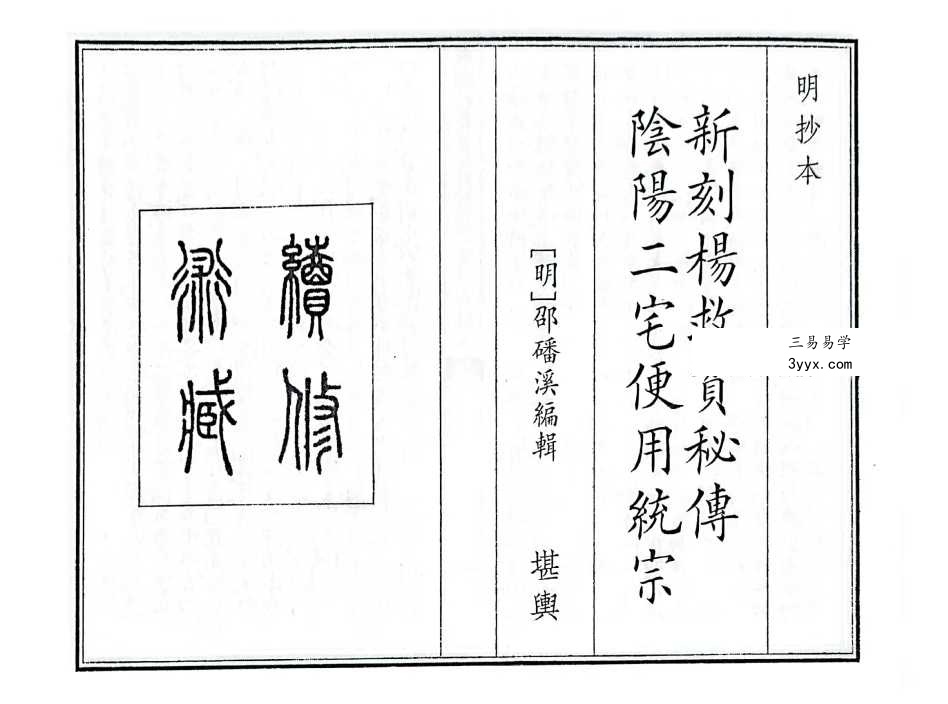 明抄本
新刻楊救貧秘傳
陰陽二宅便用統宗
三易易学
3yyx.com
[明]邵磻溪編輯 堪輿
續修
術臧